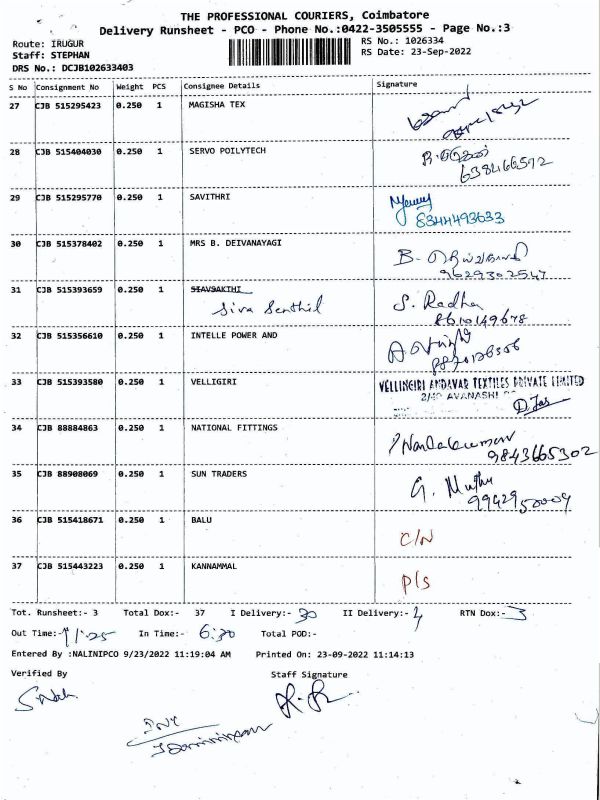 THE PROFESSIONAL COURIERS, Coimbatore
Delivery Runsheet - PCO - Phone No.:0422-3505555 - Page No.:3
Route: IRUGUR RS No.: 1026334
Staff: STEPHAN RS Date: 23-Sep-2022
DRS No.: DCJB102633403
S No Consignment No Weight PCS Consignee Details Signature
27 CJB 515295423 0.250 1 MAGISHA TEX
28 CJB 515404030 0.250 1 SERVO POILYTECH
6384166572
29 CJB 515295770 0.250 1 SAVITHRI
8344493633
30 CJB 515378402 0.250 1 MRS B. DEIVANAYAGI
9629302547
31 CJB 515393659 0.250 1 SIAVSAKTHI S. Radha
Siva Senthil 8610149678
32 CJB 515356610 0.250 1 INTELLE POWER AND
33 CJB 515393580 0.250 1 VELLIGIRI VELLINGIRI ANDAVAR TEXTILES PRIVATE LIMITED
AVANASHI
34 CJB 88884863 0.250 1 NATIONAL FITTINGS Nandakumar
9843665302
35 CJB 88908069 0.250 1 SUN TRADERS G. Muthu
9942950009
36 CJB 515418671 0.250 1 BALU
C/N
37 CJB 515443223 0.250 1 KANNAMMAL
P/S
Tot. Runsheet:- 3 Total Dox:- 37 I Delivery:- 30 II Delivery:- 4 RTN Dox:- 3
Out Time:- 11:25 In Time:- 6:30 Total POD:-
Entered By :NALINIPCO 9/23/2022 11:19:04 AM Printed On: 23-09-2022 11:14:13
Verified By Staff Signature